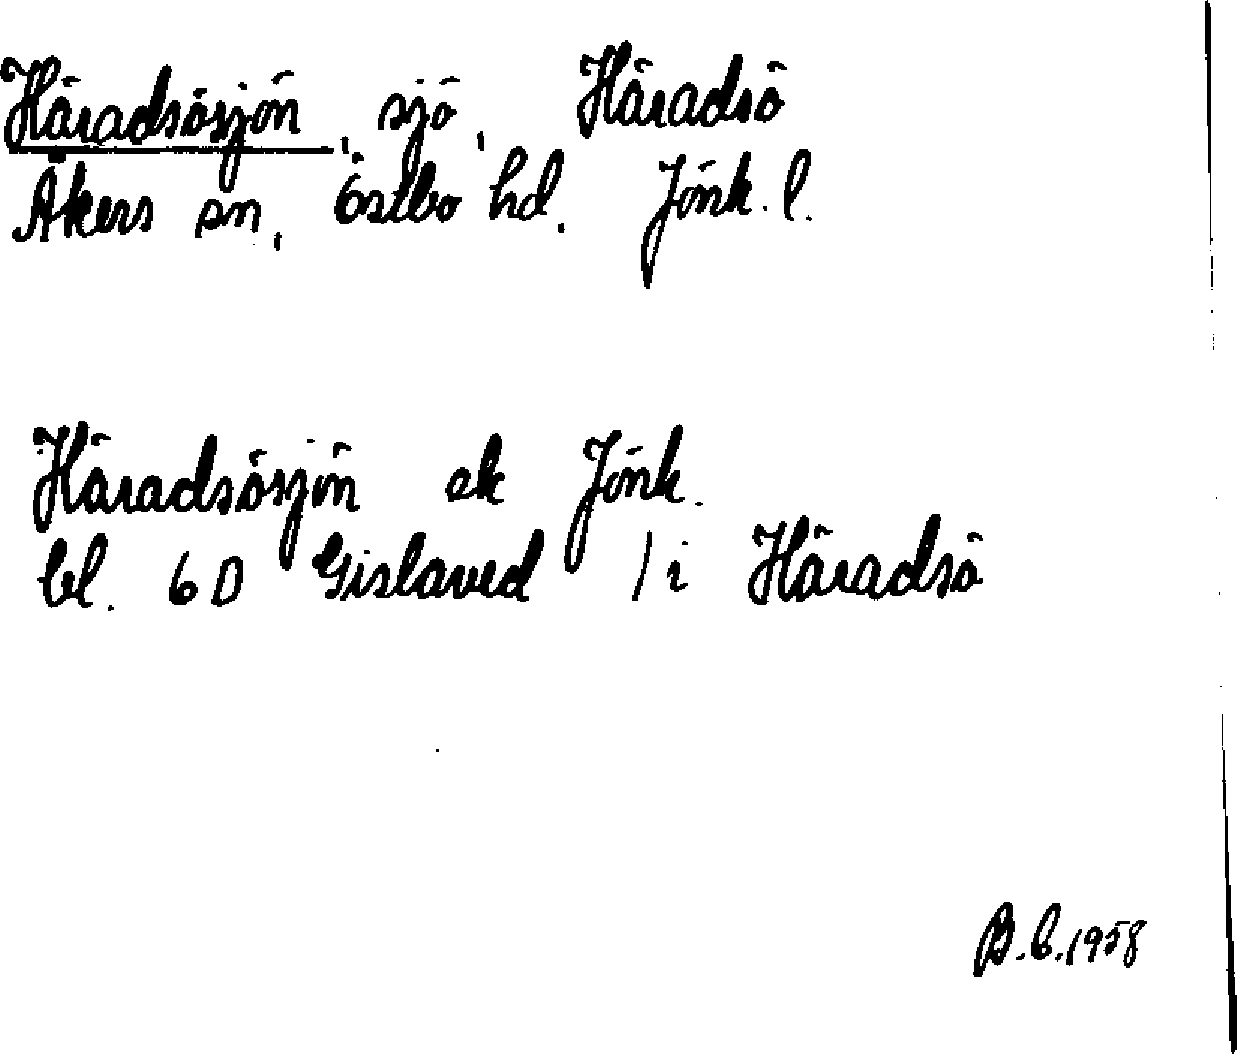 Häradsösjön, sjö, Häradsö
Åkers sn, Östbo hd. Jönk. l.
Häradsösjön ek Jönk.
bl. 6D Gislaved / i Häradsö
B.C. 1958